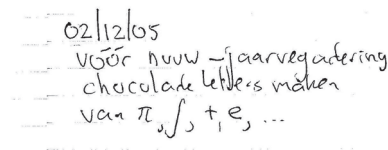 02/12/05
vóór nuuw-jaarvegadering
chocolade letters maken
van π, ∫, +, e, ...